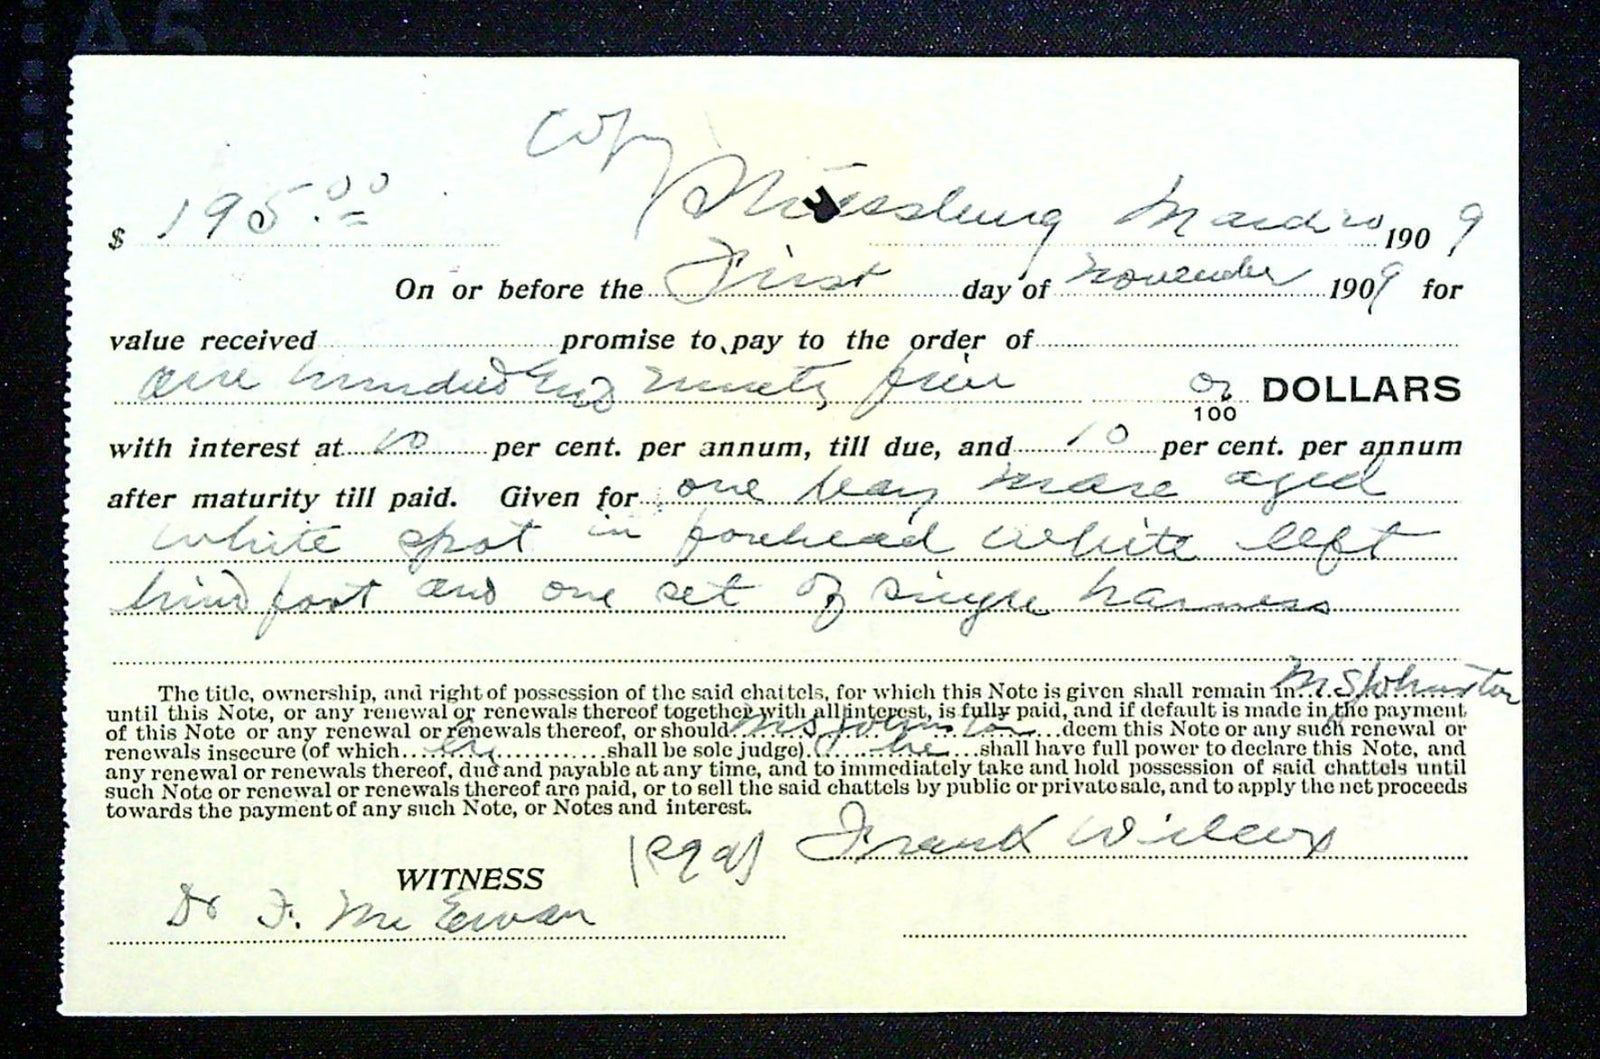 Copy
$ 195.00 Strassburg March 20 1909
On or before the First day of November 1909 for
value received promise to pay to the order of
one hundred and ninety five 00/100 DOLLARS
with interest at 10 per cent. per annum, till due, and 10 per cent. per annum
after maturity till paid. Given for one bay mare aged
white spot in forehead white left
hind foot and one set of single harness
The title, ownership, and right of possession of the said chattels, for which this Note is given shall remain in M S Johnston
until this Note, or any renewal or renewals thereof together with all interest, is fully paid, and if default is made in the payment
of this Note or any renewal or renewals thereof, or should M S Johnston deem this Note or any such renewal or
renewals insecure (of which he shall be sole judge). he shall have full power to declare this Note, and
any renewal or renewals thereof, due and payable at any time, and to immediately take and hold possession of said chattels until
such Note or renewal or renewals thereof are paid, or to sell the said chattels by public or private sale, and to apply the net proceeds
towards the payment of any such Note, or Notes and interest.
Frank Wilcox
WITNESS
Dr F. McEwan